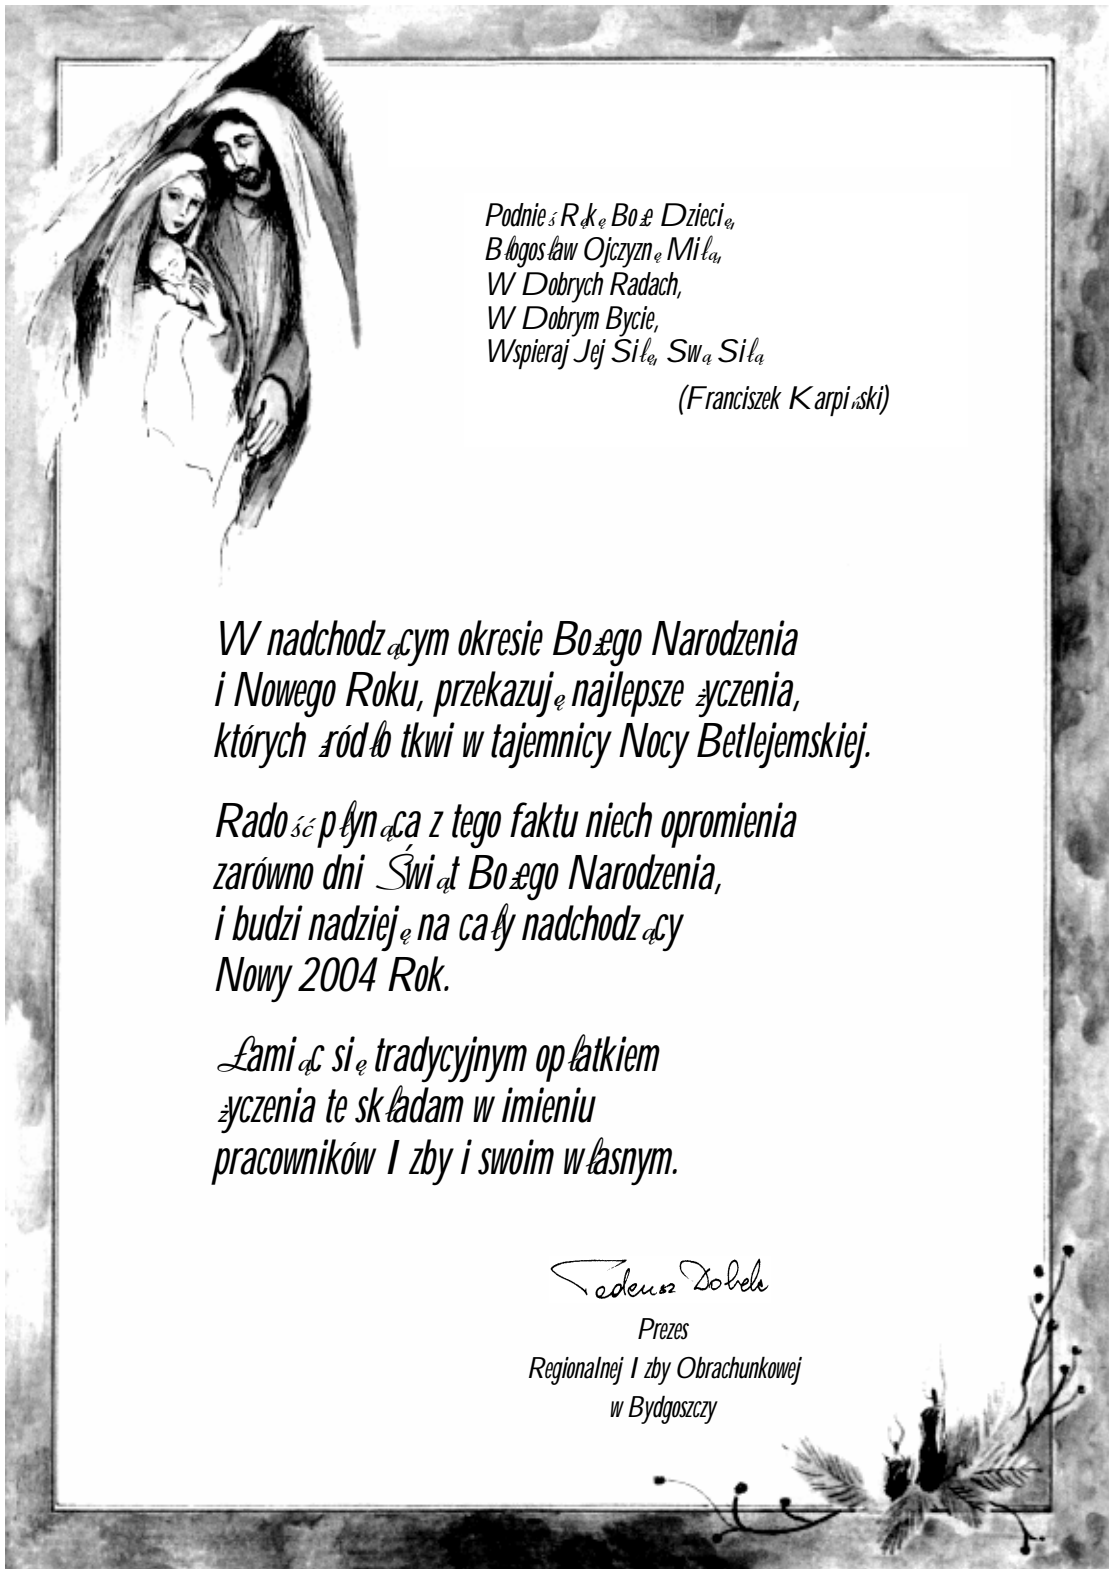 Podnieś Rękę Boże Dziecię,
Błogosław Ojczyznę Miłą,
W Dobrych Radach,
W Dobrym Bycie,
Wspieraj Jej Siłę, Swą Siłą
(Franciszek Karpiński)
W nadchodzącym okresie Bożego Narodzenia
i Nowego Roku, przekazuję najlepsze życzenia,
których źródło tkwi w tajemnicy Nocy Betlejemskiej.
Radość płynąca z tego faktu niech opromienia
zarówno dni Świąt Bożego Narodzenia,
i budzi nadzieję na cały nadchodzący
Nowy 2004 Rok.
Łamiąc się tradycyjnym opłatkiem
życzenia te składam w imieniu
pracowników Izby i swoim własnym.
Tadeusz Dobek
Prezes
Regionalnej Izby Obrachunkowej
w Bydgoszczy